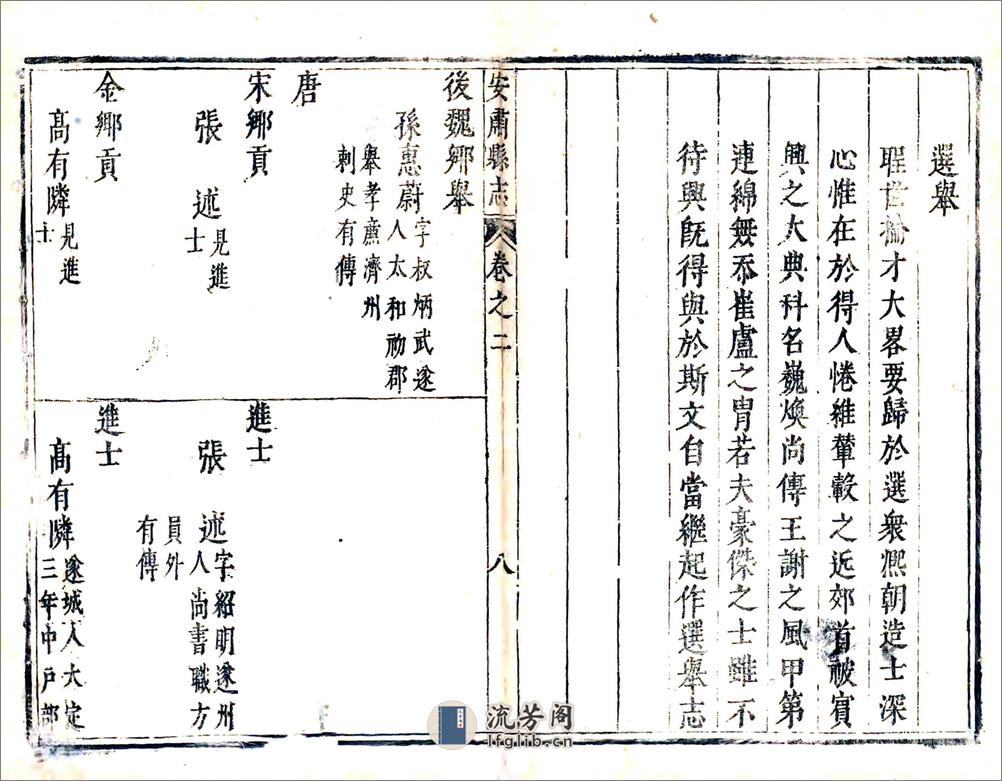 選舉
聖世掄才大畧要歸於選衆熈朝造士深
心惟在於得人惓維輦轂之近郊首被賓
興之大典科名巍煥尚傳王謝之風甲第
連綿無忝崔盧之胄若夫豪傑之士雖不
待興既得與於斯文自當繼起作選舉志
安肅縣志
卷之二
八
後魏鄉舉
孫惠蔚字叔炳武遂
人太和初郡
舉孝廉濟州
刺史有傳
唐
宋鄉貢
張述見進
士
金鄉貢
高有隣見進
士
進士
張述字紹明遂州
人尚書職方
員外
有傳
進士
高有隣遂城人大定
三年中戸部
流芳阁
lfglib.cn